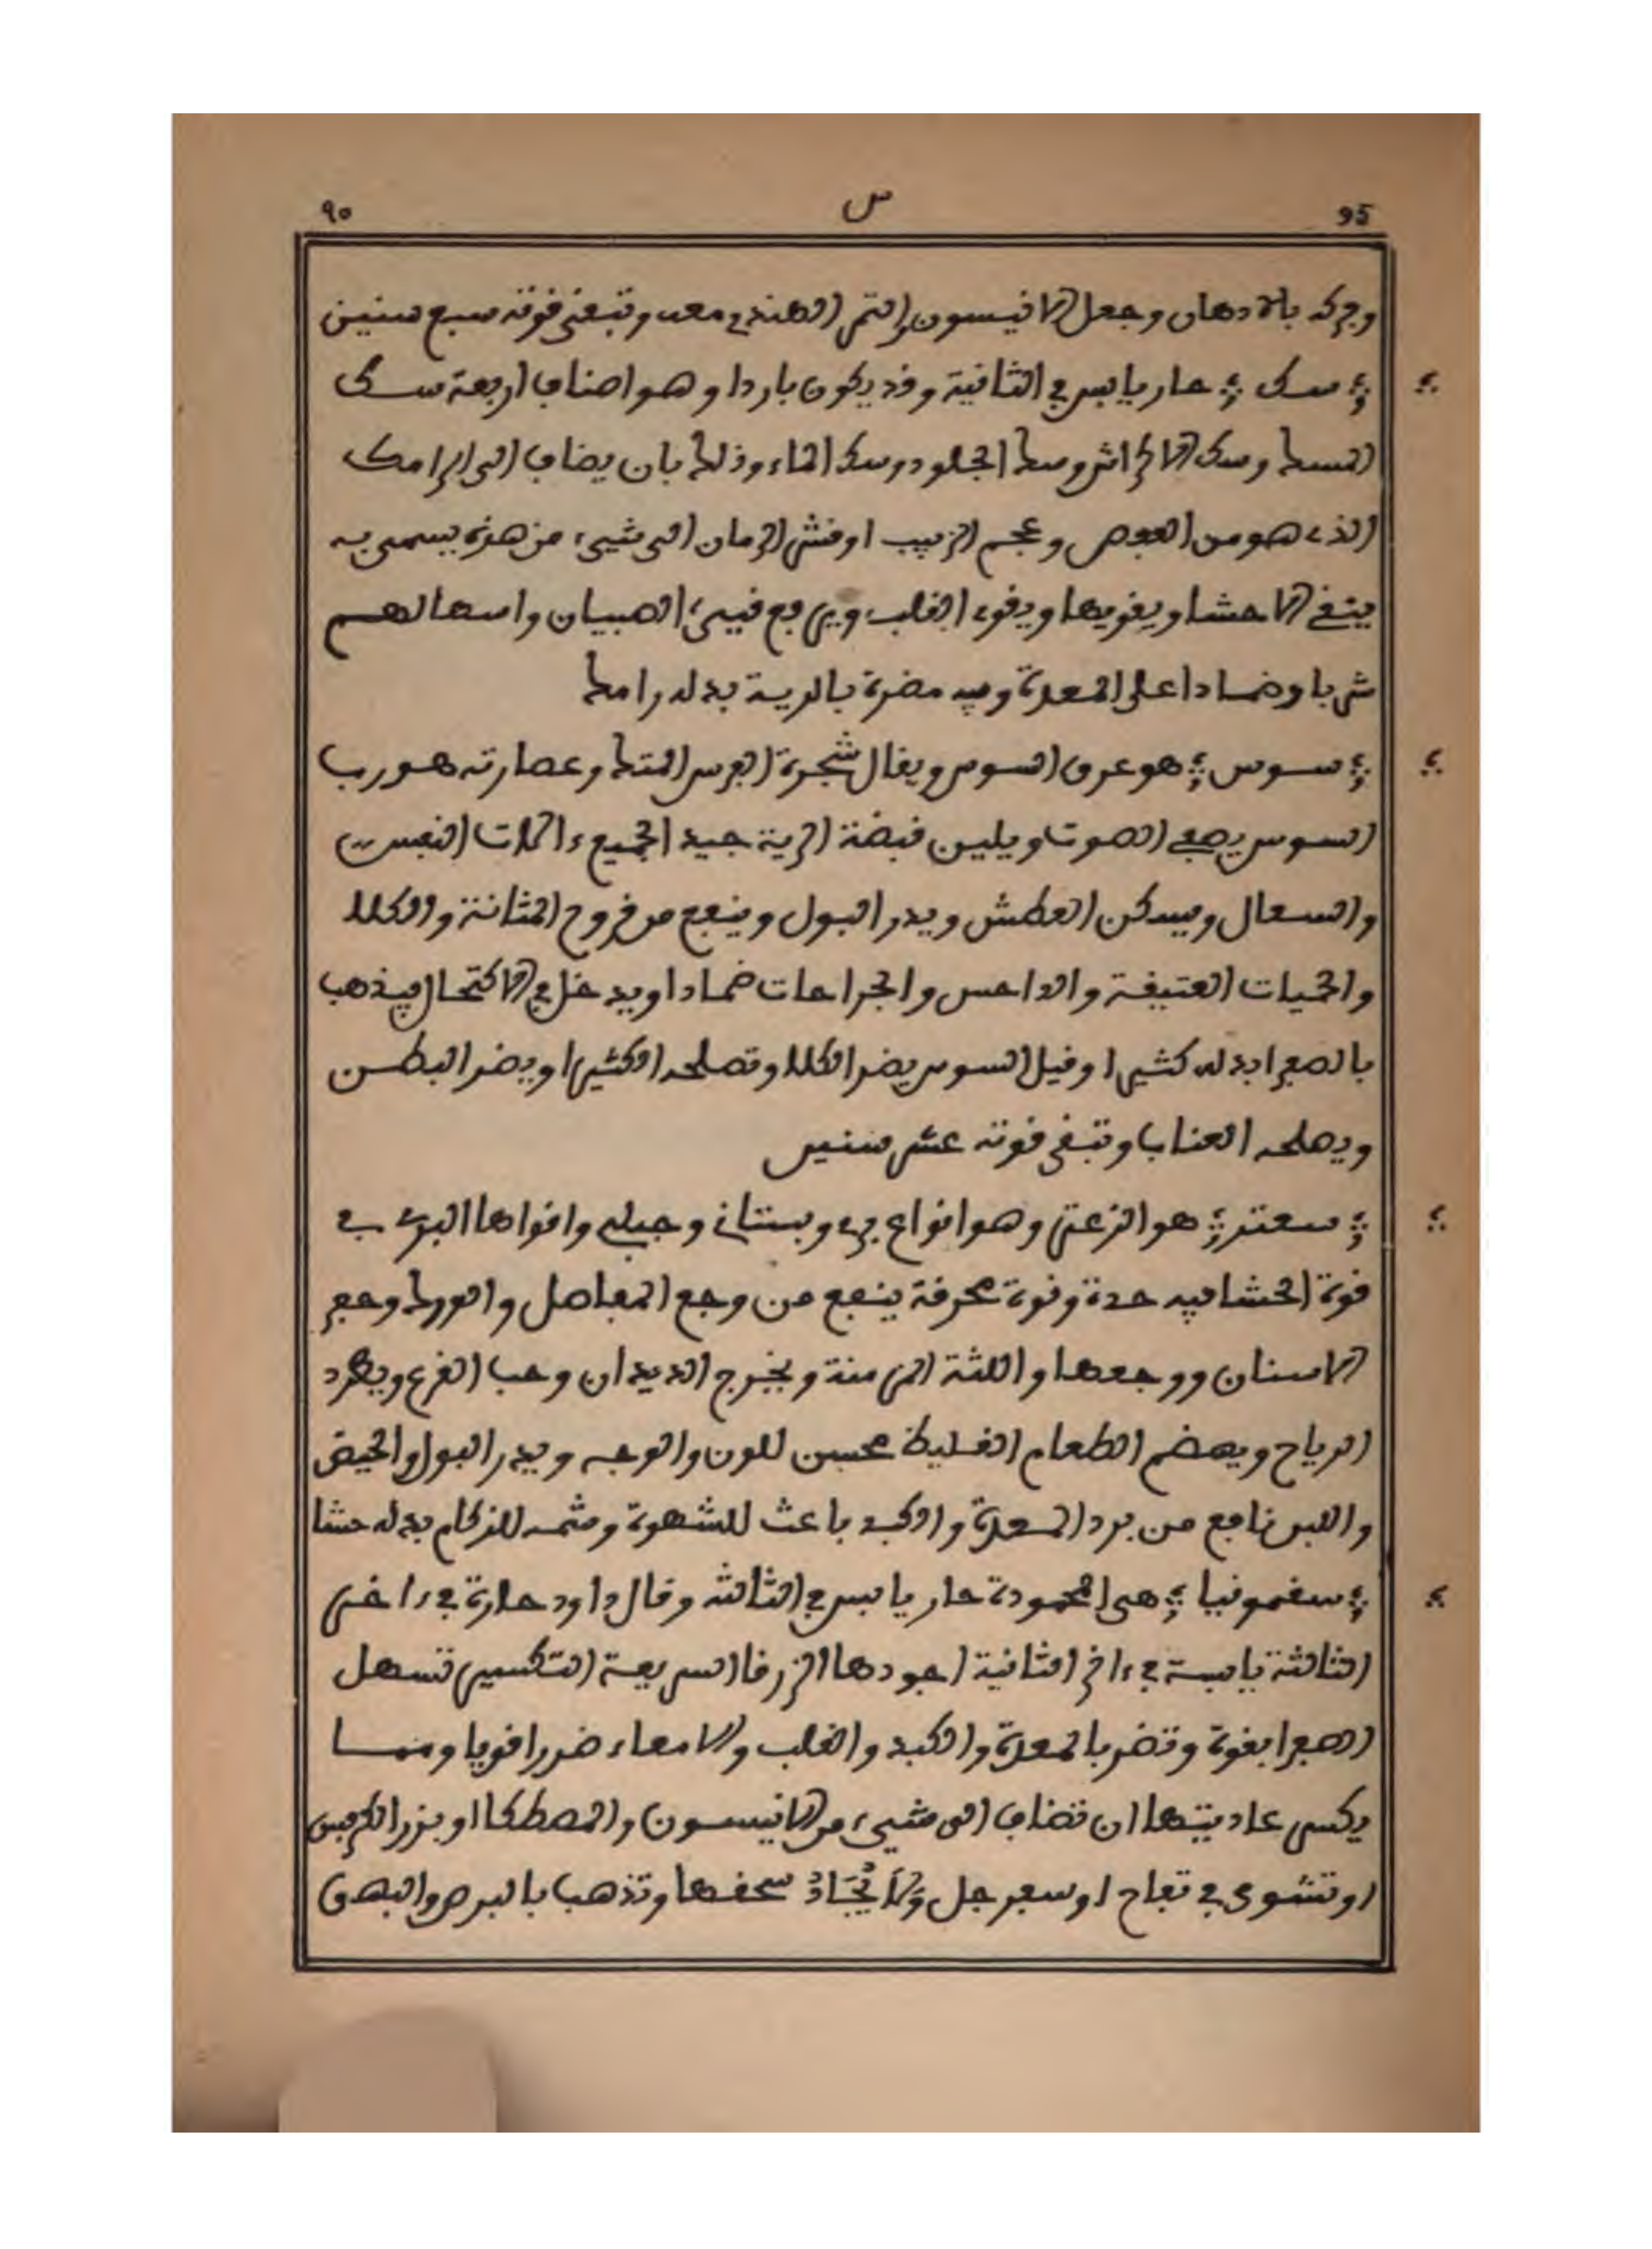 ٩٠ س 95
وفركه بالادهان وجعل الانيسون والتمر الهندي معه وتبقى قوته سبع سنين
؞ سك ؞ حار يابس في الثانية وقد يكون باردا وهو اصناف اربعة سك
المسك وسك الاكراش وسك الجلود وسك الماء وذلك بان يضاف الى الرامك
الذي هو من العفص وعجم الزبيب او قشر الرمان الى شيء من هذه يسمى به
ينقي الاحشا ويقويها ويقوي القلب ويرفع قيء الصبيان واسهالهم
شربا وضمادا على المعدة وفيه مضرة بالرية بدله رامك
؞ سوس ؞ هو عرق السوس ويقال شجرة الفرس المتك وعصارته هو رب
السوس يصفي الصوت ويلين قبضة الرية جيد لجميع ءالات النفس
والسعال ويسكن العطش ويدر البول وينفع من قروح المثانة والكلا
والحميات العتيقة والداحس والجراحات ضمادا ويدخل في الاكتحال فيذهب
بالصفرا بدله كثيرا وقيل السوس يضر الكلا وتصلحه الكثيرا ويضر البطن
ويصلحه العناب وتبقى قوته عشر سنين
؞ سعتر ؞ هو الزعتر وهو انواع بري وبستاني وجبلي واقواها البري في
قوة الحشا فيه حدة وقوة محرقة ينفع من وجع المفاصل والورك وحفر
الاسنان ووجعها واللثة المزمنة ويخرج الديدان وحب القرع ويطرد
الرياح ويهضم الطعام الغليظ محسن للون والوجه ويدر البول والحيض
واللبن نافع من برد المعدة والكبد باعث للشهوة وشمه للزكام بدله حشا
؞ سقمونيا ؞ هي المحمودة حار يابس في الثالثة وقال داود حارة في ءاخر
الثالثة يابسة في ءاخر الثانية اجودها الزرقا السريعة التكسير تسهل
الصفرا بقوة وتضر بالمعدة والكبد والقلب والامعاء ضررا قويا ومما
يكسر عاديتها ان تضاف الى شيء من الانيسون والمصطكا او بزر الكرفس
او تشوى في تفاح او سفرجل ولا يجاد سحقها وتذهب بالبرص والبهق